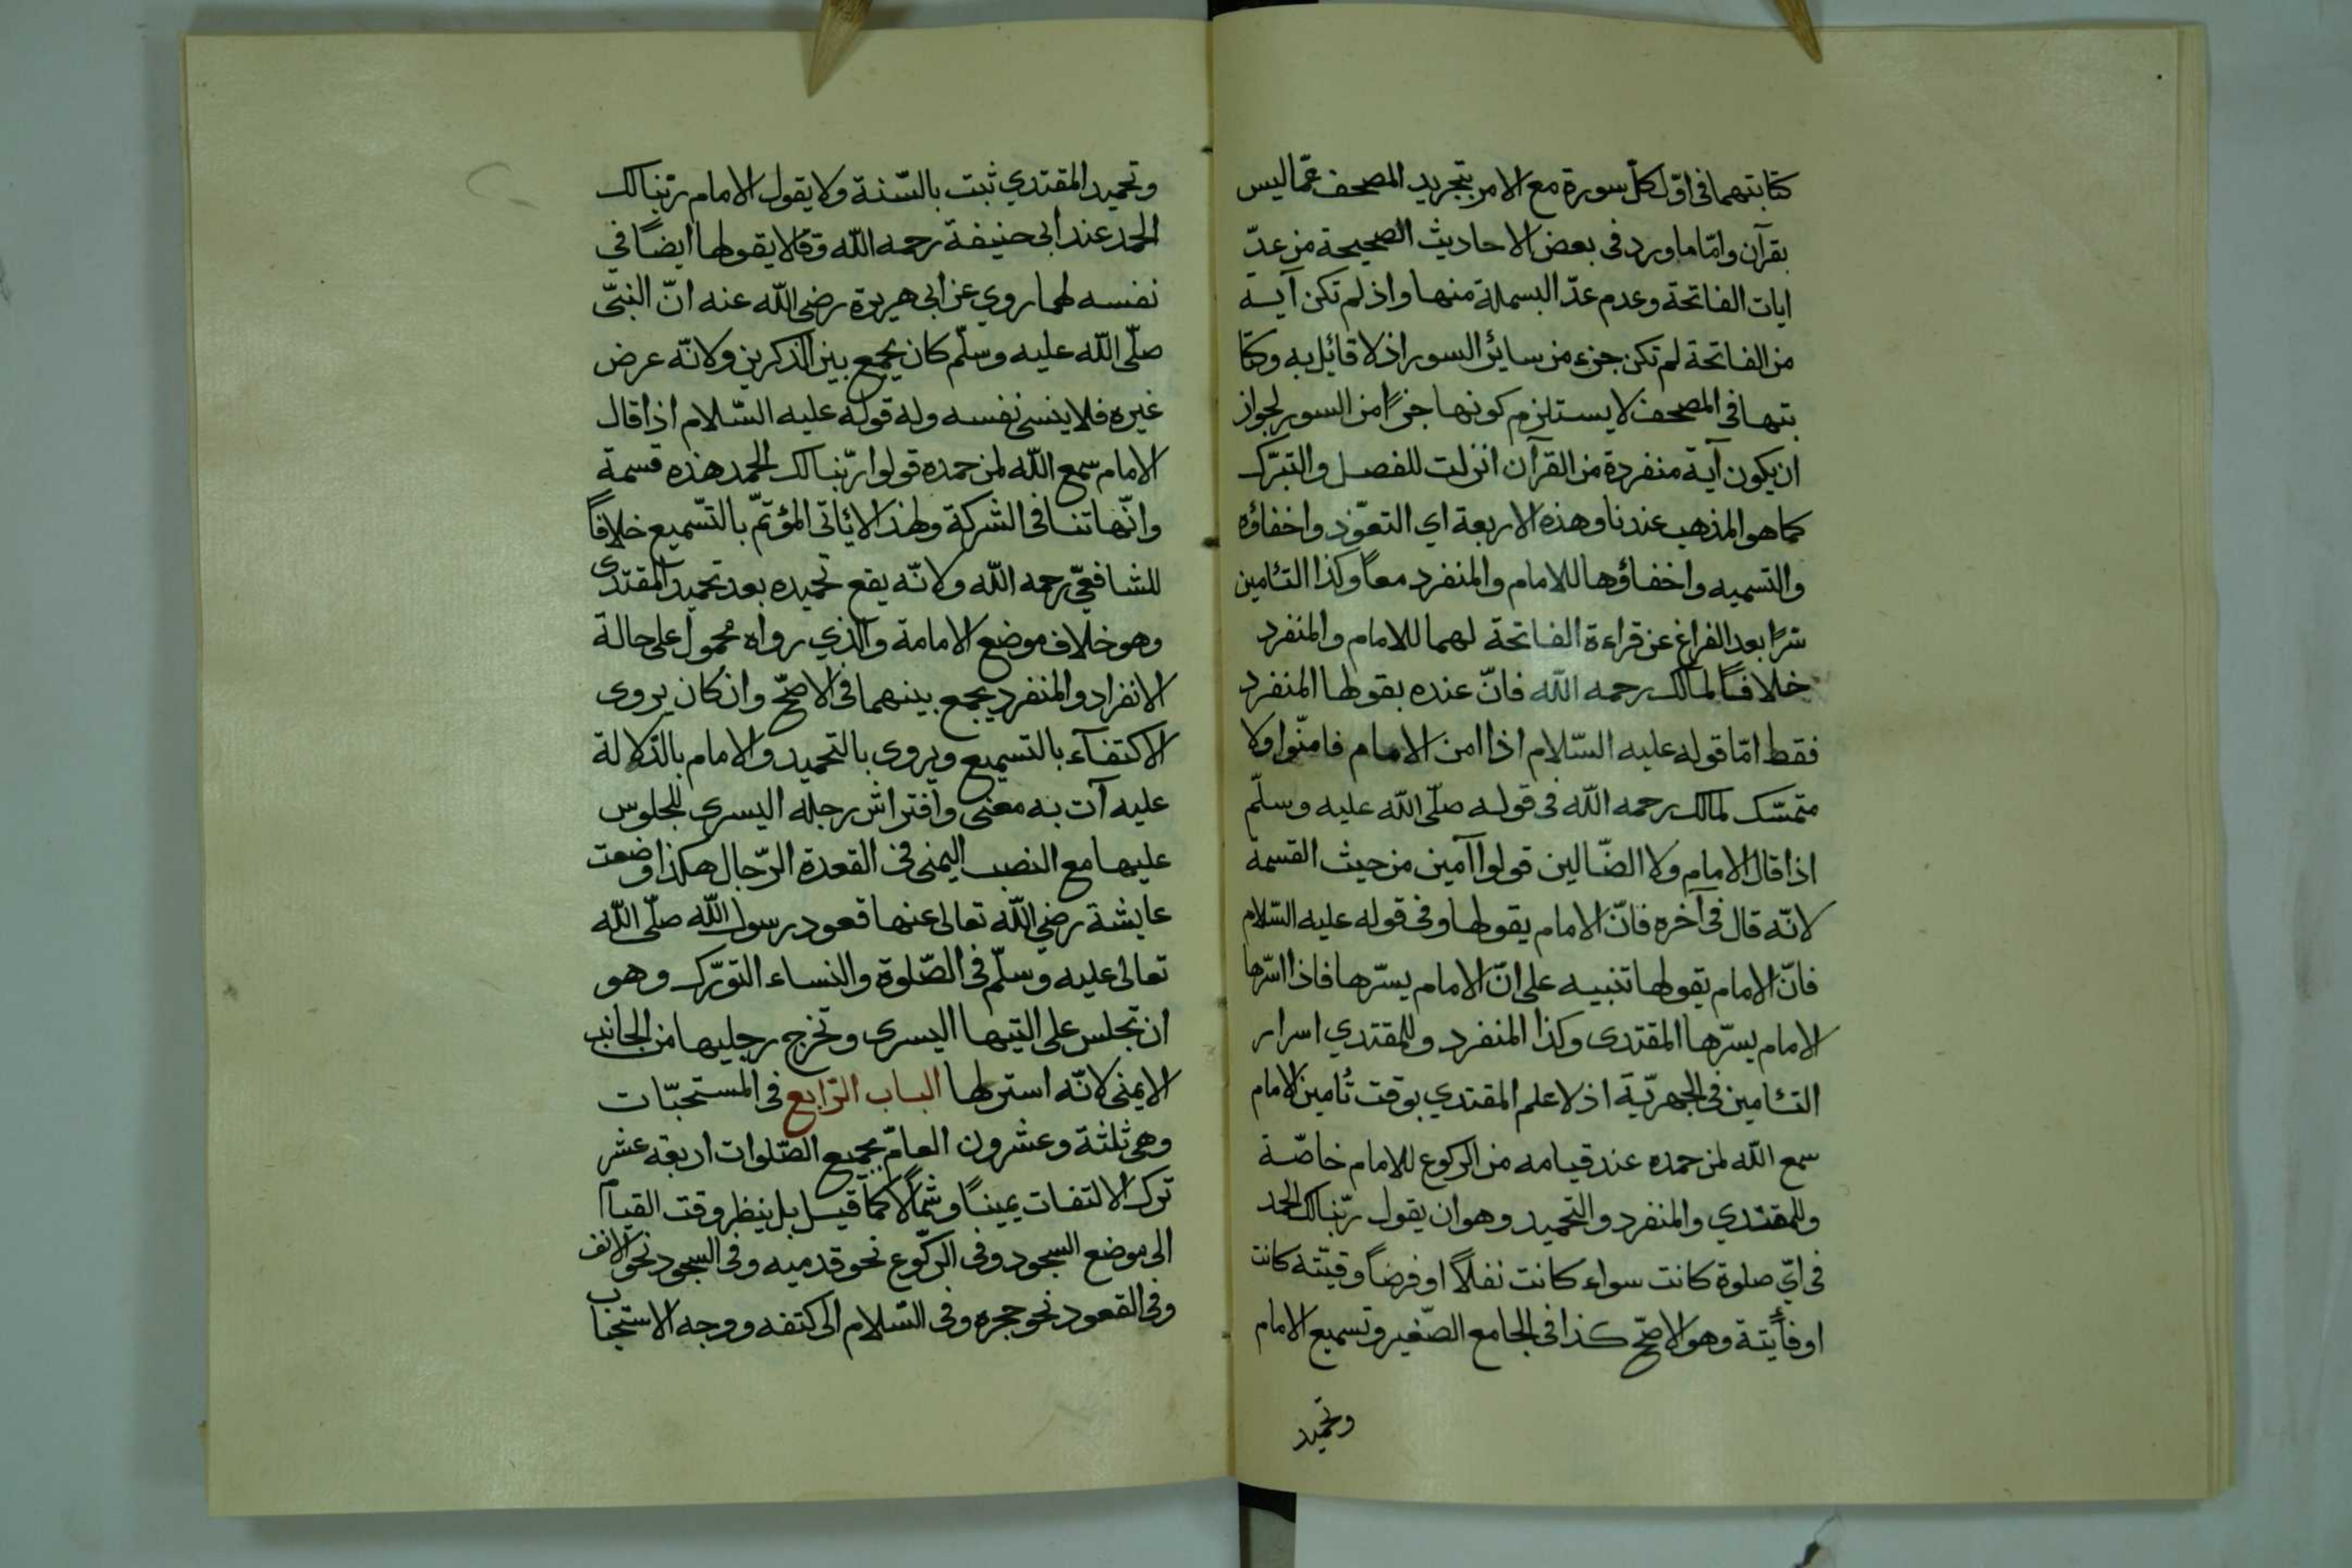 كتابتهما فى اوّل كلّ سورة مع الامر بتجريد المصحف عمّا ليس
بقرآن وامّا ما ورد فى بعض الاحاديث الصحيحة من عدّ
ايات الفاتحة وعدم عدّ البسملة منها واذ لم تكن آية
من الفاتحة لم تكن جزء من سائر السور اذ لا قائل به وكتا
بتها فى المصحف لا يستلزم كونها جزأ من السور لجواز
ان يكون آية منفردة من القرآن انزلت للفصل والتبرّك
كما هو المذهب عندنا وهذه الاربعة اي التعوّذ واخفاؤه
والتسميه واخفاؤها للامام والمنفرد معاً وكذا التئامين
سرًا بعد الفراغ عن قراءة الفاتحة لهما للامام والمنفرد
خلافاً لمالك رحمه الله فانّ عنده يقولها المنفرد
فقط امّا قوله عليه السّلام اذا امن الامام فامنّوا ولا
متمسّك لمالك رحمه الله فى قوله صلّى الله عليه وسلّم
اذا قال الامام ولا الضّالين قولوا آمين من حيث القسمة
لانّه قال فى آخره فانّ الامام يقولها وفى قوله عليه السّلام
فانّ الامام يقولها تنبيه على انّ الامام يسرّها فاذا اسّرها
الامام يسرّها المقتدى وكذا المنفرد وللمقتدي اسرار
التئامين فى الجهريّة اذ لا علم المقتدي بوقت تأمين الامام
سمع الله لمن حمده عند قيامه من الركوع للامام خاصّة
وللمقتدي والمنفرد والتحميد وهو ان يقول ربّنا لك الحمد
فى ايّ صلوة كانت سواء كانت نفلاً او فرضاً وقيّته كانت
او فأيتة وهو الاصحّ كذا فى الجامع الصّغير وتسميع الامام
وتحميد
وتحميد المقتدي ثبت بالسّنة ولا يقول الامام ربّنا لك
الحمد عند ابى حنيفة رحمه الله وقالا يقولها ايضاً في
نفسه لهما روي عن ابى هريرة رضى الله عنه انّ النبىّ
صلّى الله عليه وسلّم كان يجمع بين الذكرين ولانّه عرض
غيره فلا ينسى نفسه وله قوله عليه السّلام اذا قال
الامام سمع الله لمن حمده قولوا ربّنا لك الحمد هذه قسمة
وانّها تنافى الشركة ولهذا لا يئاتى المؤتمّ بالتّسميع خلافاً
للشافعىّ رحمه الله ولانّه يقع تحميده بعد تحميد المقتدى
وهو خلاف موضع الامامة والّذي رواه محمول على حالة
الانفراد والمنفرد يجمع بينهما فى الاصحّ وان كان يروى
الاكتفآء بالتسميع ويروى بالتحميد والامام بالدّلالة
عليه آت به معنى وافتراش رجله اليسرى للجلوس
عليها مع النصب اليمنى فى القعدة الرّجال هكذا وضعت
عايشة رضي الله تعالى عنها قعود رسول الله صلّى الله
تعالى عليه وسلّم فى الصّلوة والنساء التورّك وهو
ان تجلس على اليتيها اليسرى وتخرج رجليها من الجانب
الايمنى لانّه استر لها الباب الرّابع فى المستحبّات
وهى ثلثة وعشرون العامّ بجميع الصّلوات اربعة عشر
ترك الالتفات يميناً وشمالًا كما قيل بل ينظر وقت القيام
الى موضع السجود وفى الركّوع نحو قدميه وفى السجود نحو الانف
وفى القعود نحو حجره وفى السّلام الى كتفه ووجه الاستحباب